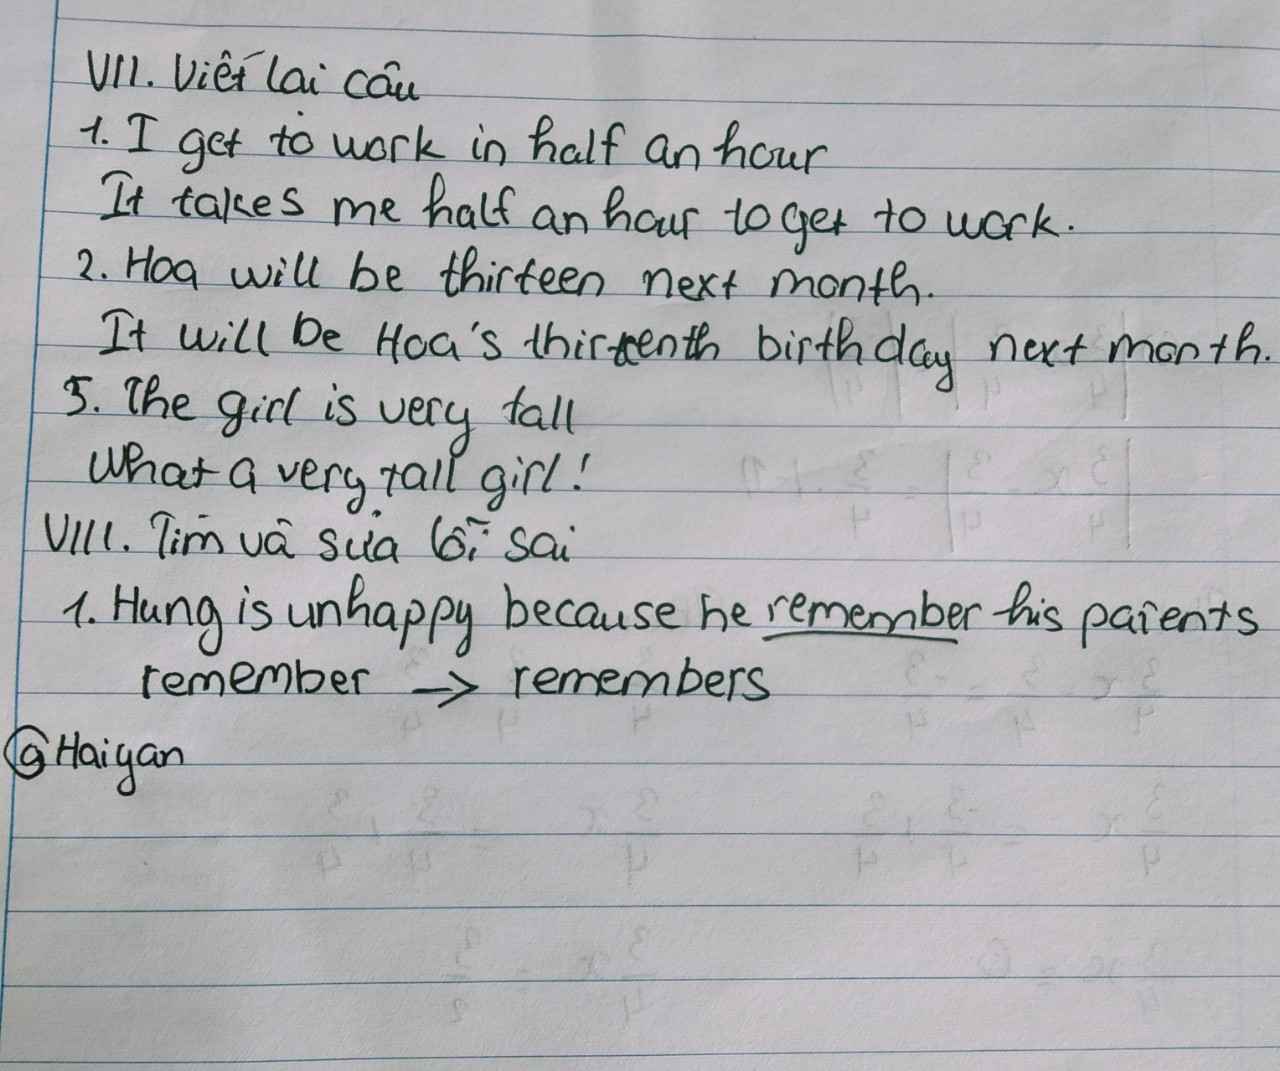 VII. Viết lại câu
1. I get to work in half an hour
It takes me half an hour to get to work.
2. Hoa will be thirteen next month.
It will be Hoa's thirteenth birthday next month.
3. The girl is very tall
What a very tall girl!
VIII. Tìm và sửa lỗi sai
1. Hung is unhappy because he remember his parents
remember → remembers
@Haiyan